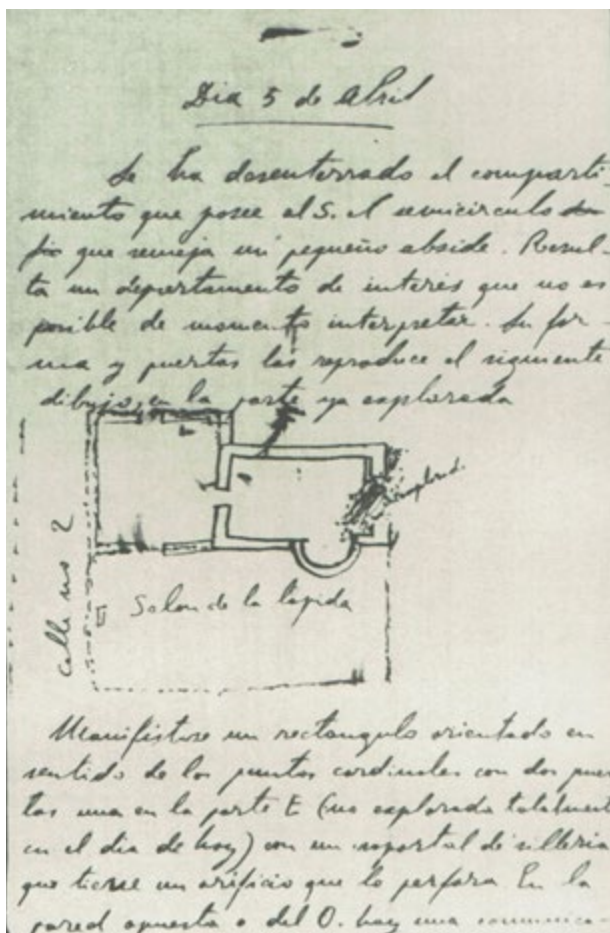 Dia 5 de Abril
Se ha desenterrado el comparti
miento que posee al S. el semicirculo
que semeja un pequeño abside. Resul-
ta un departamento de interés que no es
posible de momento interpretar. Su for-
ma y puertas las reproduce el siguiente
dibujo, en la parte ya explorada
explorad.
calle no 2
Salon de la lapida
Manifistose un rectangulo orientado en
sentido de los puntos cardinales con dos puer
tas una en la parte E (no explorada totalment
en el dia de hoy) con un soportal de silleria
que tiene un orificio que lo perfora. En la
pared opuesta o del O. hay una comunica-